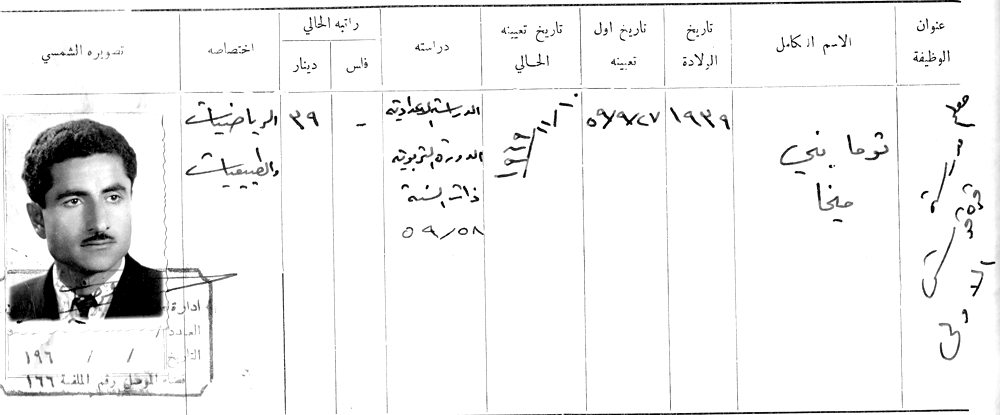 عنوان الوظيفة
الاسم الكامل
تاريخ الولادة
تاريخ اول تعيينه
تاريخ تعيينه الحالي
دراسته
راتبه الحالي
فلس
دينار
اختصاصه
تصويره الشمسي
معلم
توما يني
ميخا
١٩٣٩
٥٩/٩/٢٧
الدراسة الاعدادية
الدورة التربوية
ذات السنة
٥٩/٥٨
-
٣٩
الرياضيات
والطبيعيات
ادارة
العدد /
التاريخ / / ١٩٦
قضاء الموصل رقم الملفة ١٦٦